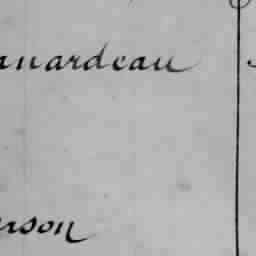 anardeau
erson